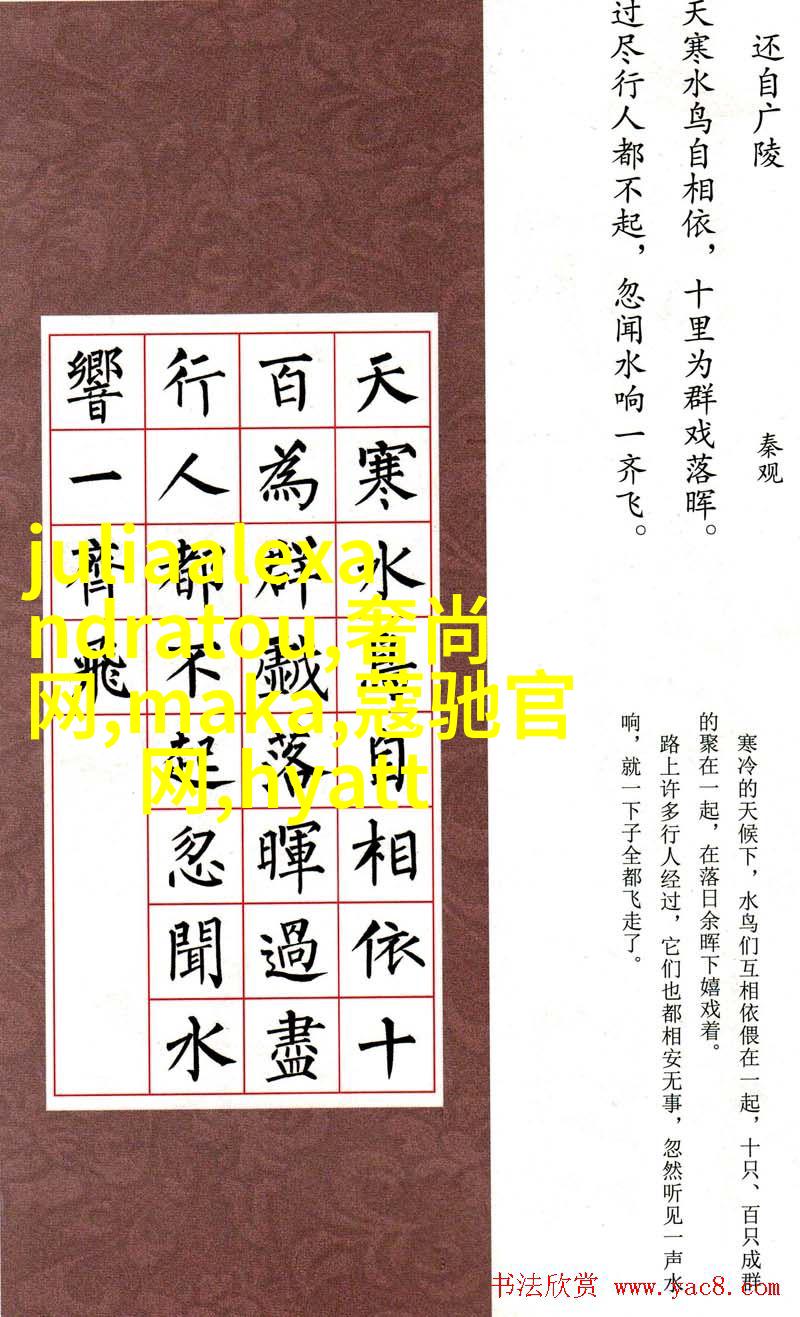 还自广陵
秦观
天寒水鸟自相依，十里为群戏落晖。
过尽行人都不起，忽闻水响一齐飞。
寒冷的天候下，水鸟们互相依偎在一起，十只、百只成群
的聚在一起，在落日余晖下嬉戏着。
路上许多行人经过，它们也都相安无事，忽然听见一声水
响，就一下子全都飞走了。
天寒水鳥自相依十
百為群戯落暉過盡
行人都不起忽聞水
響一齊飛
juliaalexa
ndratou,奢尚
网,maka,蔻驰官
网,hyatt
书法欣赏 www.yac8.com